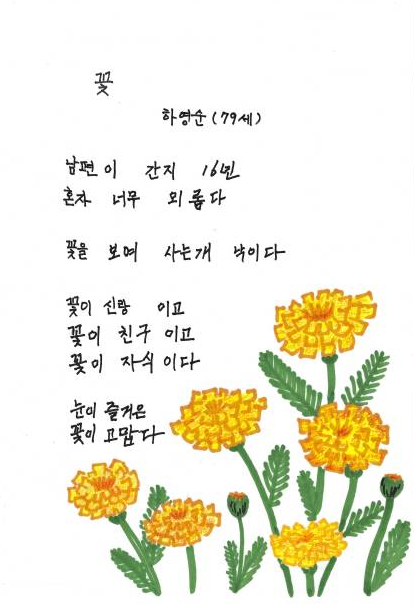 꽃
하영순 (79세)
남편이 간지 16년
혼자 너무 외롭다
꽃을 보며 사는게 낙이다
꽃이 신랑 이고
꽃이 친구 이고
꽃이 자식 이다
눈이 즐거운
꽃이 고맙다